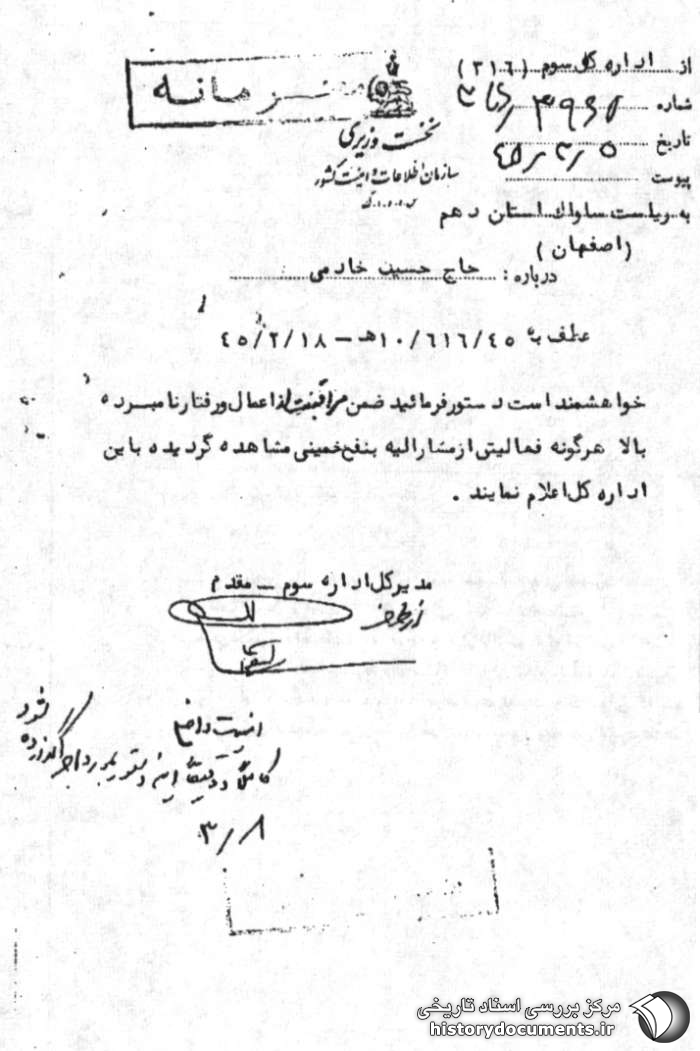 از اداره کل سوم (۳۱۶)
محرمانه
شماره
تاریخ ۴۵/۳/۵
پیوست
نخست وزیری
سازمان اطلاعات و امنیت کشور
س.ا.و.ا.ک
به ریاست ساواك استان دهم
(اصفهان)
درباره : حاج حسین خادمی
عطف به ۱۰/۶۱۶/۴۵هـ - ۴۵/۲/۱۸
خواهشمند است دستور فرمائید ضمن مراقبت از اعمال و رفتار نامبرده
بالا هرگونه فعالیتی از مشارالیه بنفع خمینی مشاهده گردیده باین
اداره کل اعلام نمایند .
مدیرکل اداره سوم – مقدم
از طرف
امنیت داخلی
کاملا و دقیقا این دستور بمورد اجرا گذارده شود
۳/۸
مرکز بررسی اسناد تاریخی
historydocuments.ir